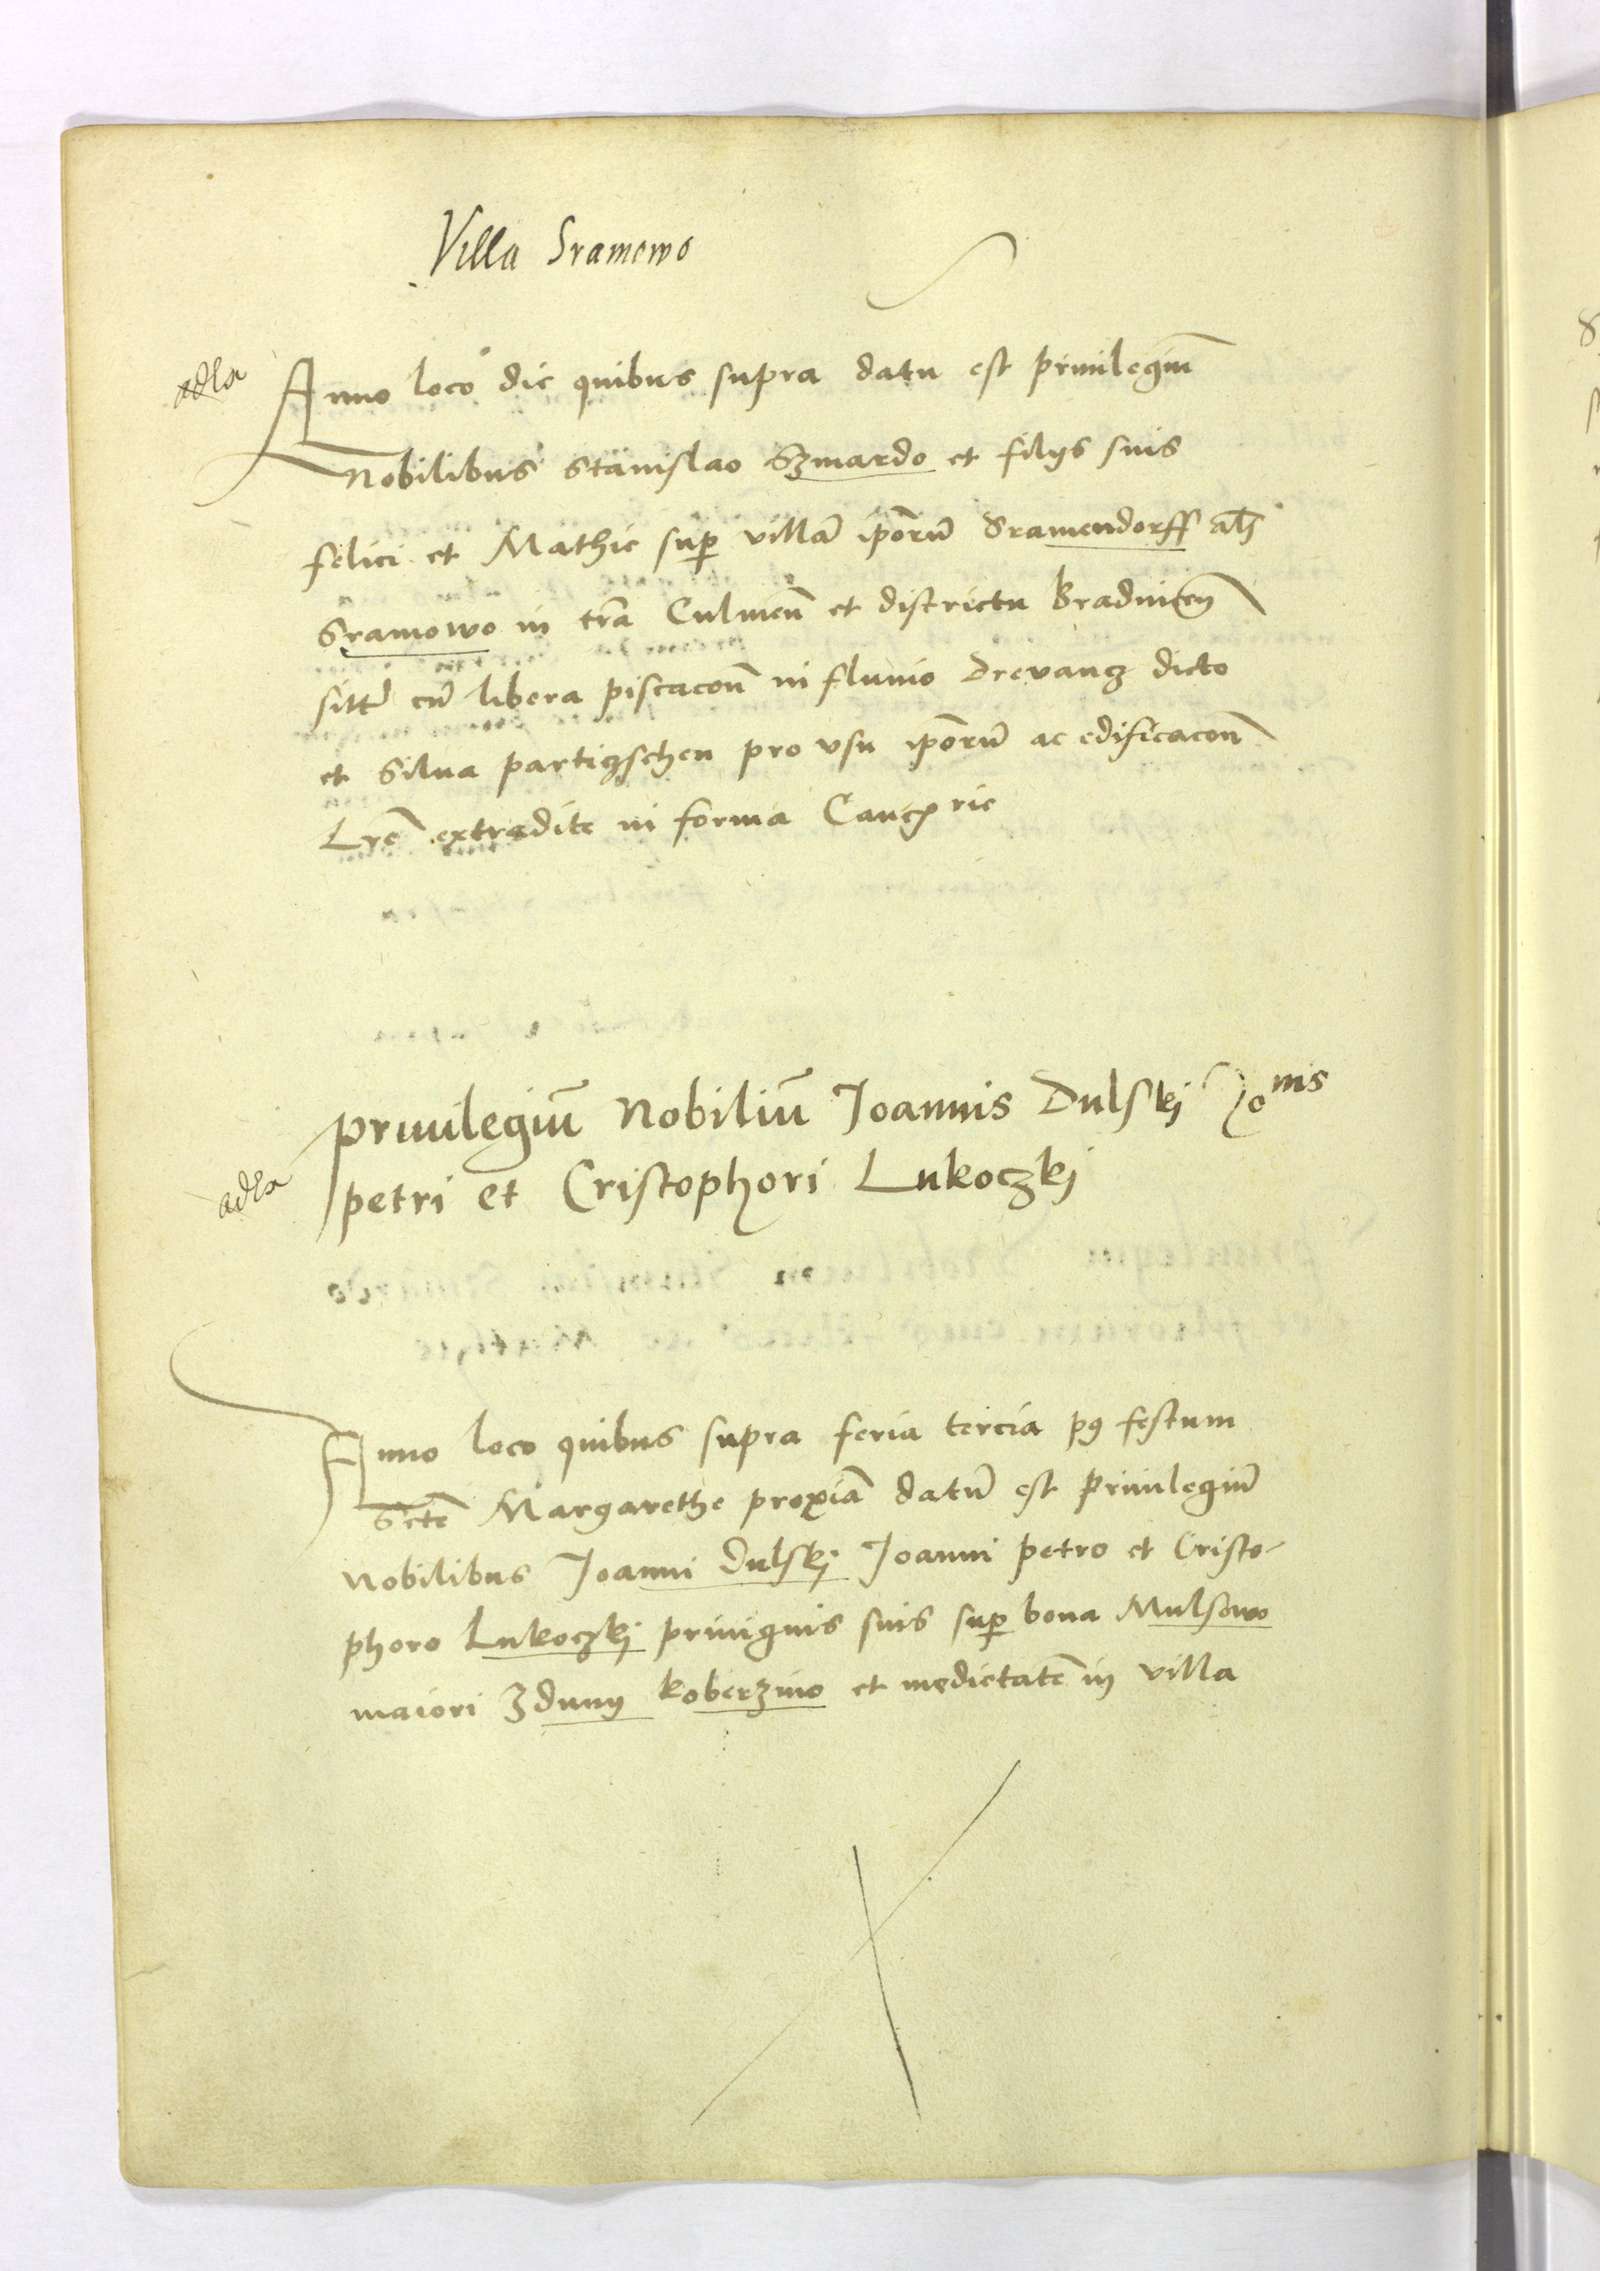 Villa Sramowo
Anno loco die quibus supra datu est priuilegiu̅
Nobilibus Stanislao Szmardo et filÿs suis
felici et Mathie sup villa̅ ip̅oru̅ Sramendorff al̅s
Sramowo in tr̅a Culmen̅ et districtu Bradnicen̅
sitt̅ cu̅ libera piscacon̅ in fluuio Drevancz dicto
et Silua particzschen pro vsu ip̅oru̅ ac edificacon̅
Lr̅e extradite in forma Canc
rie
priuilegiu̅ Nobiliu̅ Joannis Dulskj Jo nis
petri et Cristophori Lukoczkj
Anno loco quibus supra feria tercia p9 festum
Sc̅te Margarethe proxia̅ datu̅ est priuilegiu̅
Nobilibus Joanni Dulskj Joanni petro et Cristo-
phoro Lukoczkj priuignis suis sup bona Mulsowo
maiori Zduny koberzino et medietate̅ in villa